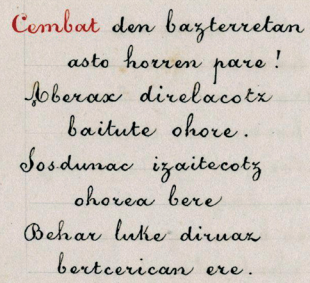 Cembat den bazterretan
asto horren pare!
Aberax direlacotz
baitute ohore.
Josdunac izaitecotz
ohorea bere
Behar luke diruaz
bertcerican ere.